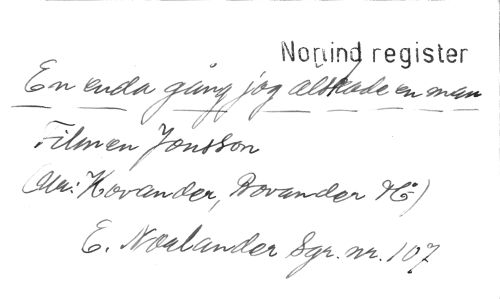 Norlind register
En enda gång jag älskade en man
Filmen Jonsson
(Ur: Kovander, Bovander Hå)
E. Norlander Sgr. nr. 107